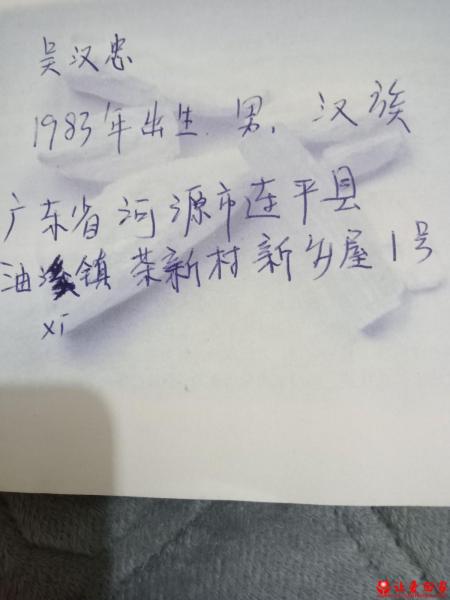 吴汉忠
1983年出生.男,汉族
广东省河源市连平县
油溪镇茶新村新乡屋1号
xi
让爱回家